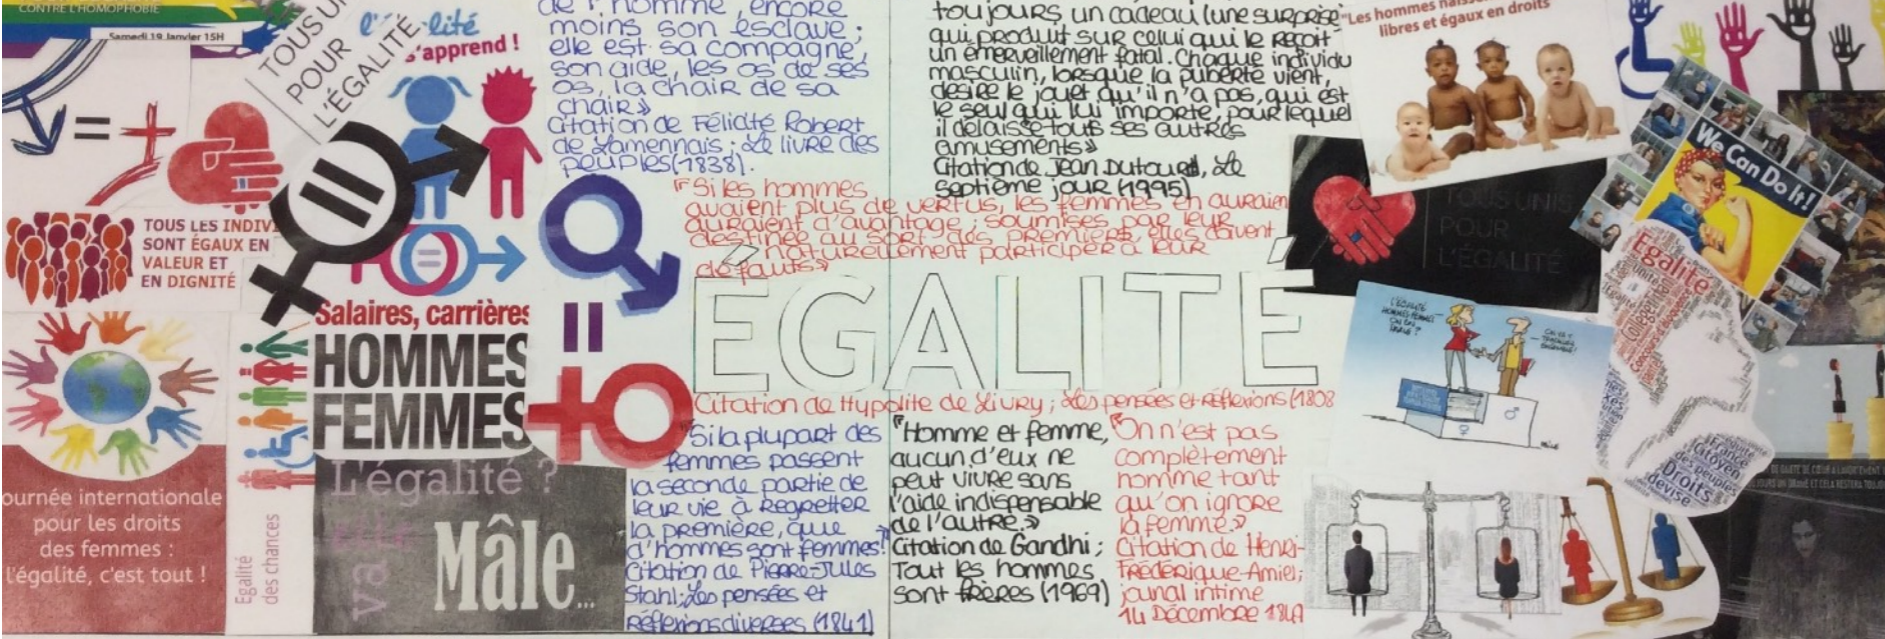 CONTRE L'HOMOPHOBIE
Samedi 19 Janvier 15H
TOUS
POUR
L'ÉGALITÉ
s'apprend !
TOUS LES INDIVI
SONT ÉGAUX EN
VALEUR ET
EN DIGNITÉ
Salaires, carrières
HOMMES
FEMMES
L'égalité ?
va
Mâle...
ournée internationale
pour les droits
des femmes :
l'égalité, c'est tout !
Egalité
des chances
de l'homme, encore
moins son esclave ;
elle est sa compagne,
son aide, les os de ses
os, la chair de sa
chair»
Citation de Félicité Robert
de Lamennais ; Le livre des
peuples (1838).
toujours, un cadeau (une surprise
qui produit sur celui qui le reçoit
un émerveillement fatal. Chaque individu
masculin, lorsque la puberté vient,
desire le jouet qu'il n'a pas, qui est
le seul qui lui importe, pour lequel
il délaisse touts ses autres
amusements»
Citation de Jean Dutourd, Le
septième jour (1995)
"Si les hommes
avaient plus de vertus, les femmes en auraien
auraient d'avantage ; soumises par leur
destinée au sort des premiers elles doivent
naturellement participer à leur
défauts»
ÉGALITÉ
Citation de Hypolite de Livry ; Les pensées et réflexions (1808
"Si la plupart des
femmes passent
la seconde partie de
leur vie à regretter
la première, que
d'hommes sont femmes!"
Citation de Pierre-Jules
Stahl ; Les pensées et
réflexions diverses (1841)
"Homme et femme,
aucun d'eux ne
peut vivre sans
l'aide indispensable
de l'autre.»
Citation de Gandhi ;
Tout les hommes
sont frères (1969)
"On n'est pas
complètement
homme tant
qu'on ignore
la femme.»
Citation de Henri-
Frédérique-Amiel;
jounal intime
14 Décembre 1849
"Les hommes
libres et égaux en droits
TOUS UNIS
POUR
L'ÉGALITÉ
We Can Do It!
L'ÉGALITÉ
HOMMES-FEMMES
Égalité
Citoyen
des peuples
Droits
devise